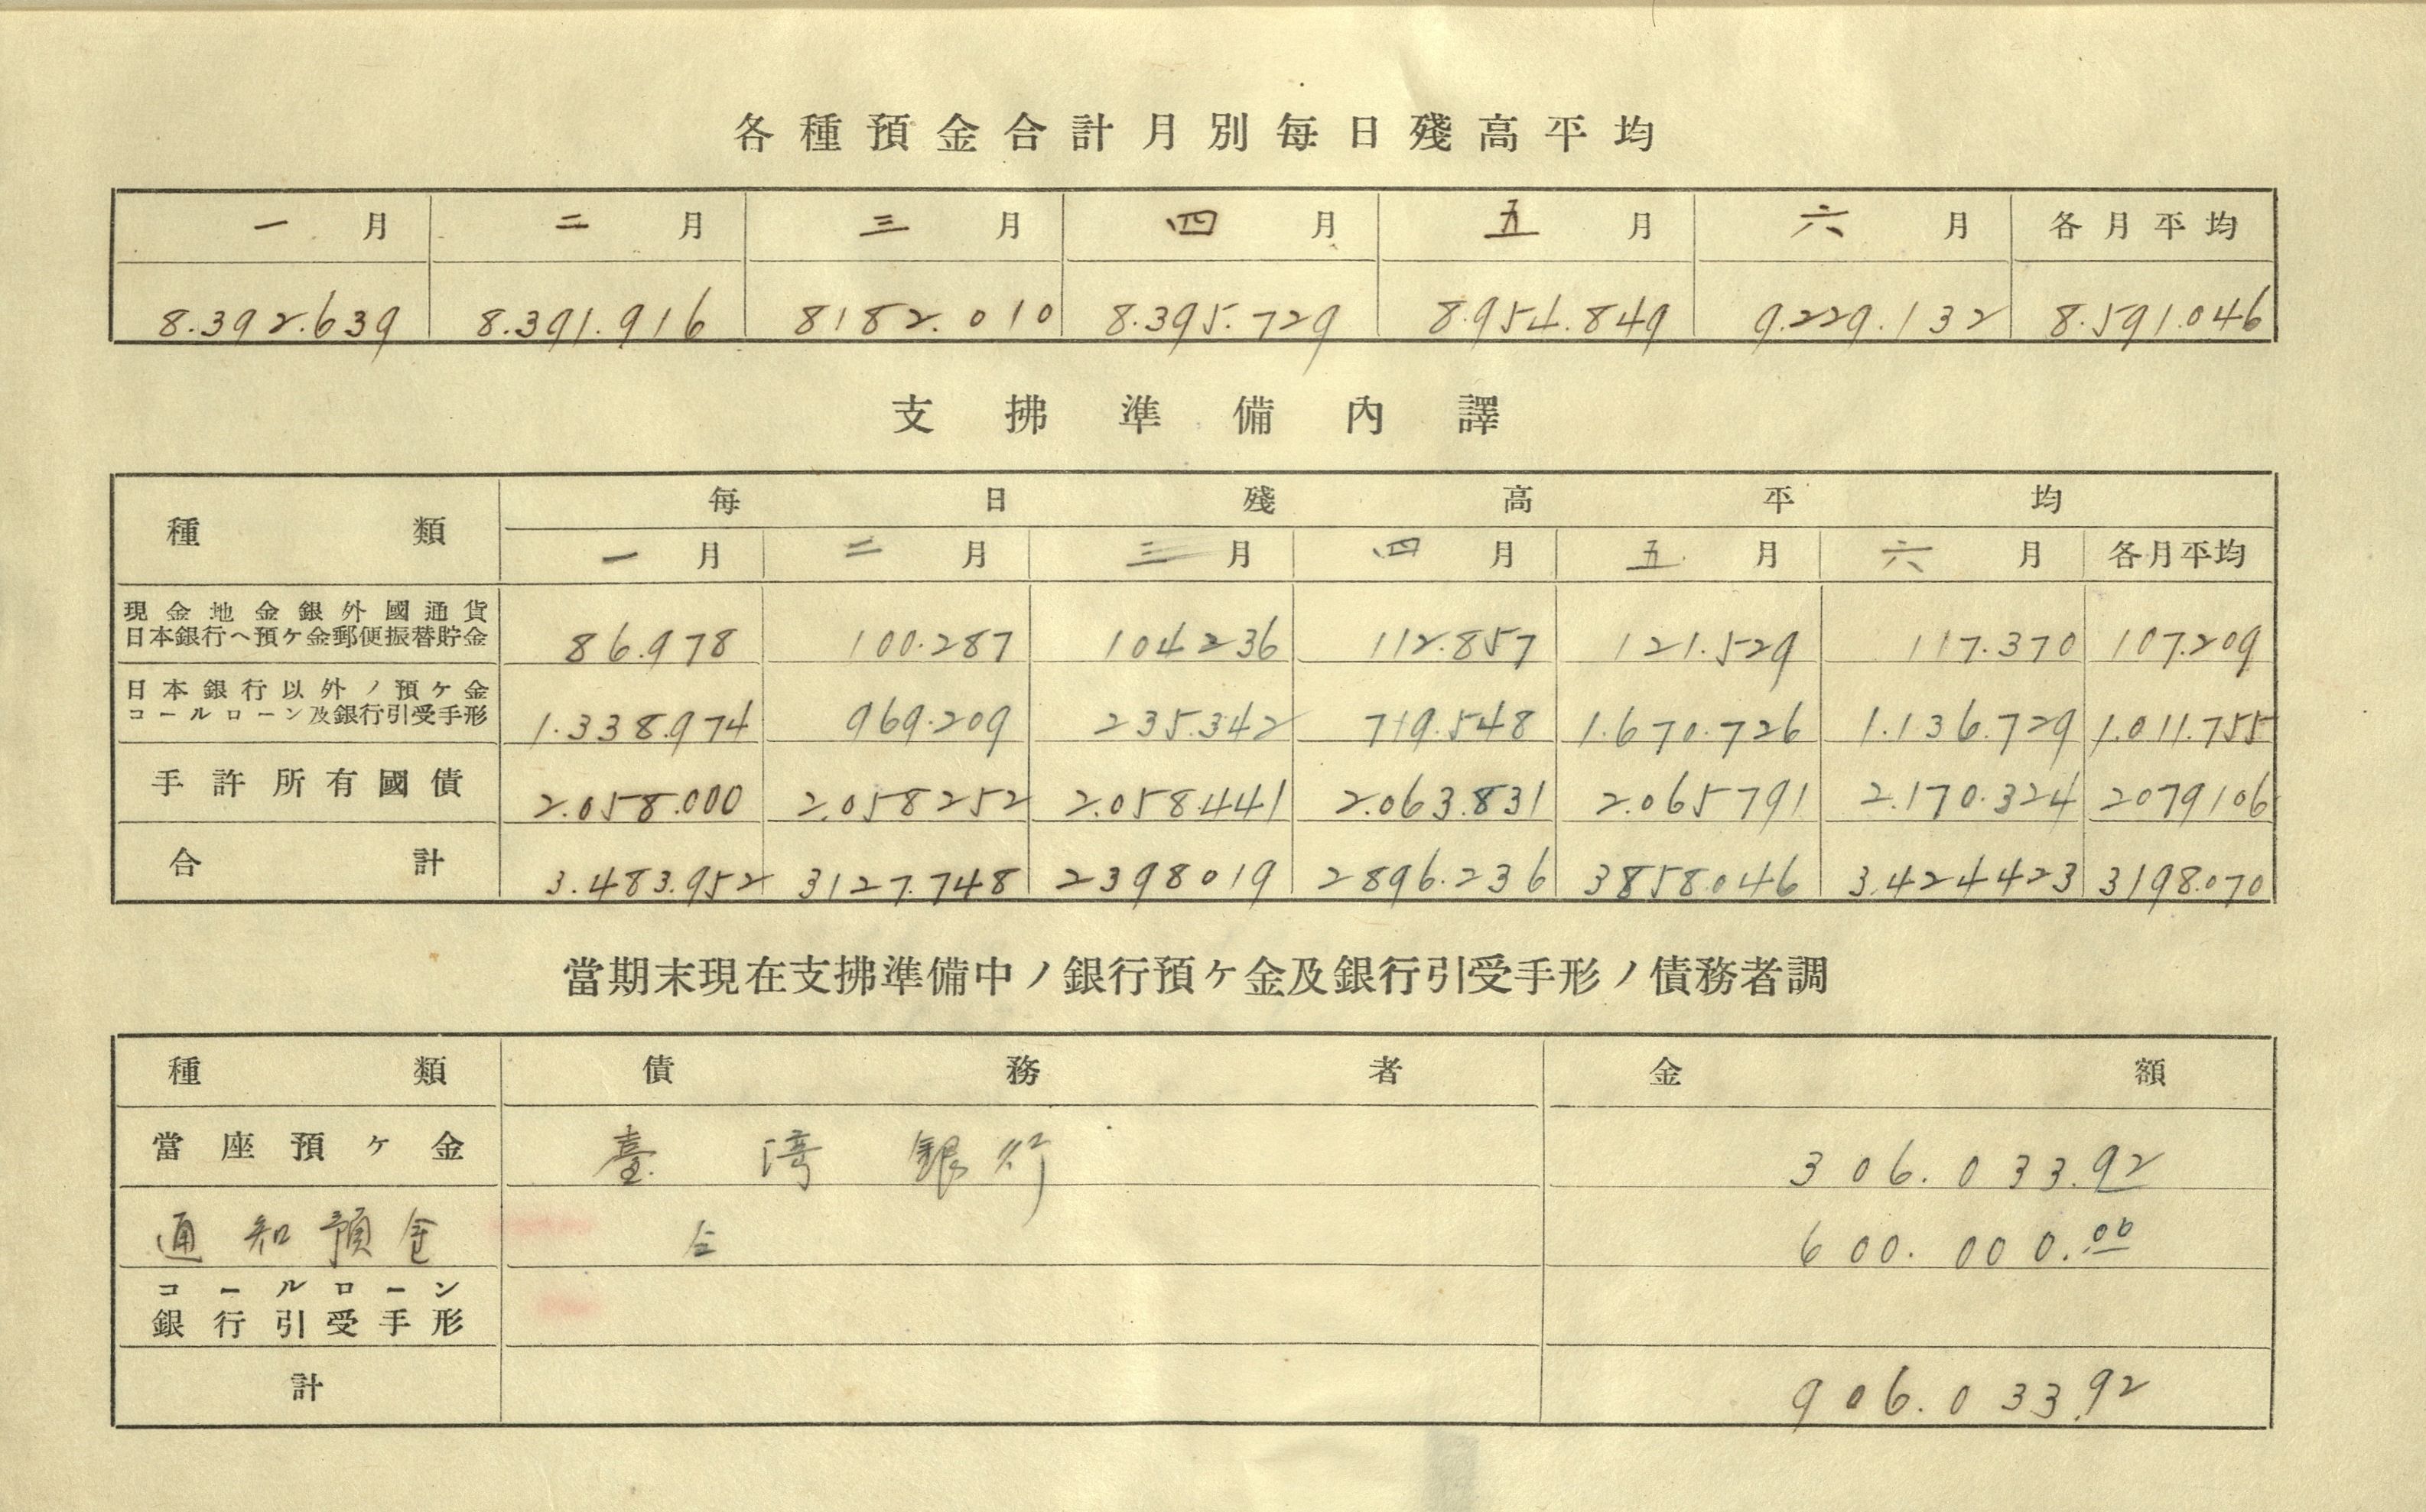 各種預金合計月別每日殘高平均
一月 二月 三月 四月 五月 六月 各月平均
8.392.639 8.391.916 8182.010 8.395.729 8.954.849 9.229.132 8.591.046
支拂準備內譯
種類 每日殘高平均
一月 二月 三月 四月 五月 六月 各月平均
現金地金銀外國通貨
日本銀行ヘ預ケ金郵便振替貯金 86.978 100.287 104236 112.857 121.529 117.370 107.209
日本銀行以外ノ預ケ金
コールローン及銀行引受手形 1.338.974 969.209 235.342 719.548 1.670.726 1.136.729 1.011.755
手許所有國債 2.058.000 2.058252 2.058.441 2.063.831 2.065791 2.170.324 2079106
合計 3.483.952 3127.748 2398019 2896.236 3858.046 3.424423 3198.070
當期末現在支拂準備中ノ銀行預ケ金及銀行引受手形ノ債務者調
種類 債務者 金額
當座預ケ金 臺湾銀行 306.033.92
通知預金 仝 600.000.00
コールローン
銀行引受手形
計 906.033.92